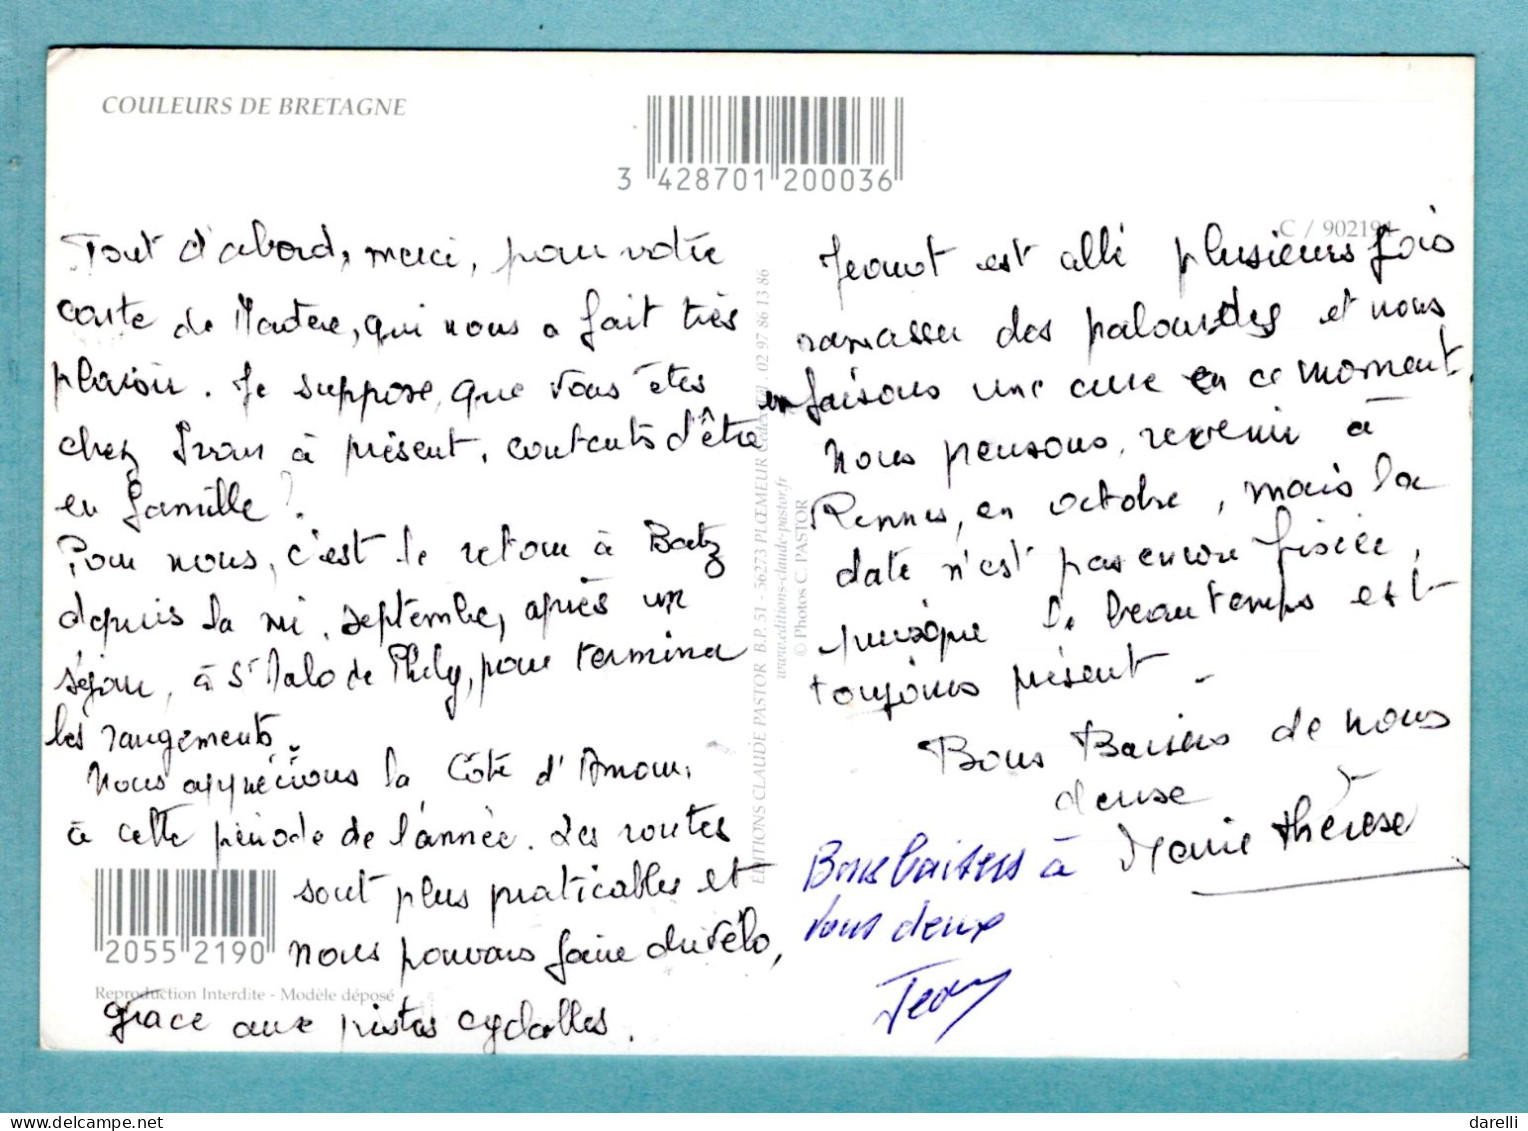 COULEURS DE BRETAGNE
3 428701 200036
C / 902194
Tout d'abord, merci, pour votre
carte de Madère, qui nous a fait très
plaisir. Je suppose, que vous êtes
chez Yvan à présent, contents d'être
en famille ?
Pour nous, c'est le retour à Batz
depuis la mi. septembre, après un
séjour, à St Malo de Phily, pour terminer
les rangements.
Nous apprécions la Côte d'Amour,
à cette période de l'année. Les routes
sont plus praticables et
nous pouvons faire du vélo,
grâce aux pistes cyclables.
2055 2190
Reproduction Interdite - Modèle déposé
EDITIONS CLAUDE PASTOR B.P. 51 - 56273 PLŒMEUR Cedex Tél. 02 97 86 13 86
www.editions-claude-pastor.fr
© Photos C. PASTOR
Jeanot est allé plusieurs fois
ramasser des palourdes et nous
en faisons une cure en ce moment.
Nous pensons, revenir à
Rennes, en octobre, mais la
date n'est pas encore fixée,
puisque le beau temps est
toujours présent.
Bons Baisers de nous
deux
Marie Thérèse
Bons baisers à
vous deux
Jean
darelli